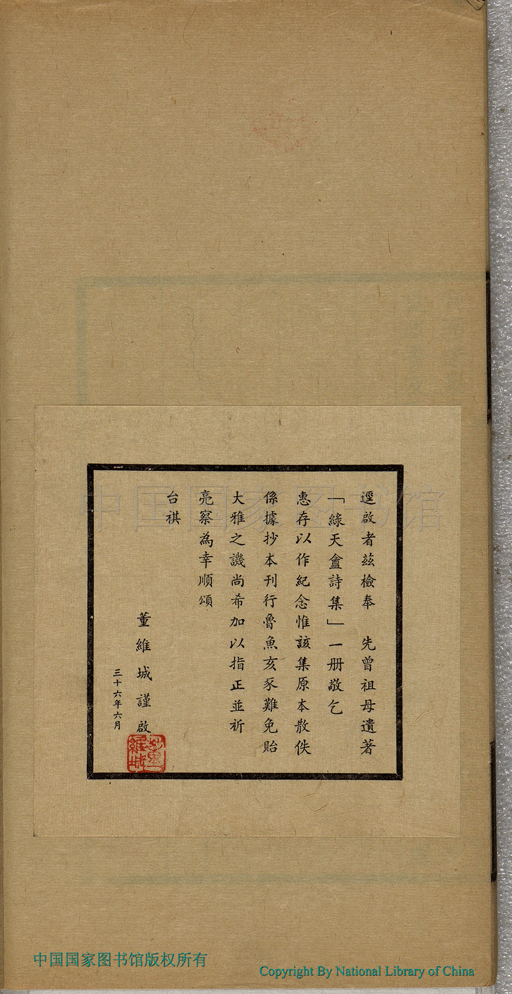 逕啟者茲檢奉　先曾祖母遺著
「綠天盦詩集」一册敬乞
惠存以作紀念惟該集原本散佚
係據抄本刊行魯魚亥豕難免貽
大雅之譏尚希加以指正並祈
亮察為幸順頌
台祺
董維城謹啟
三十六年六月
董維城
中国国家图书馆
中国国家图书馆版权所有
Copyright By National Library of China